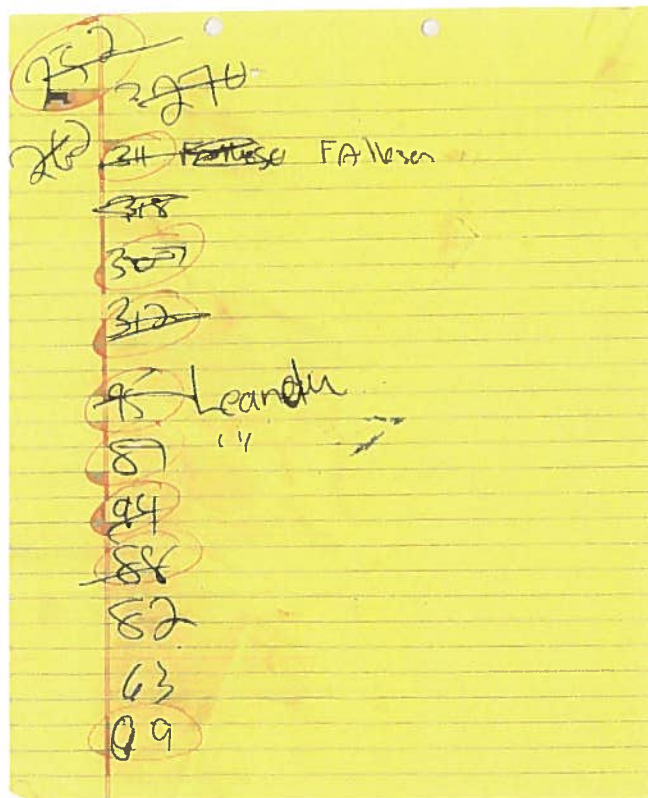 252
3270
262 311 Fallesen
318
307
312
95 Leander
87 "
94
88
82
63
09